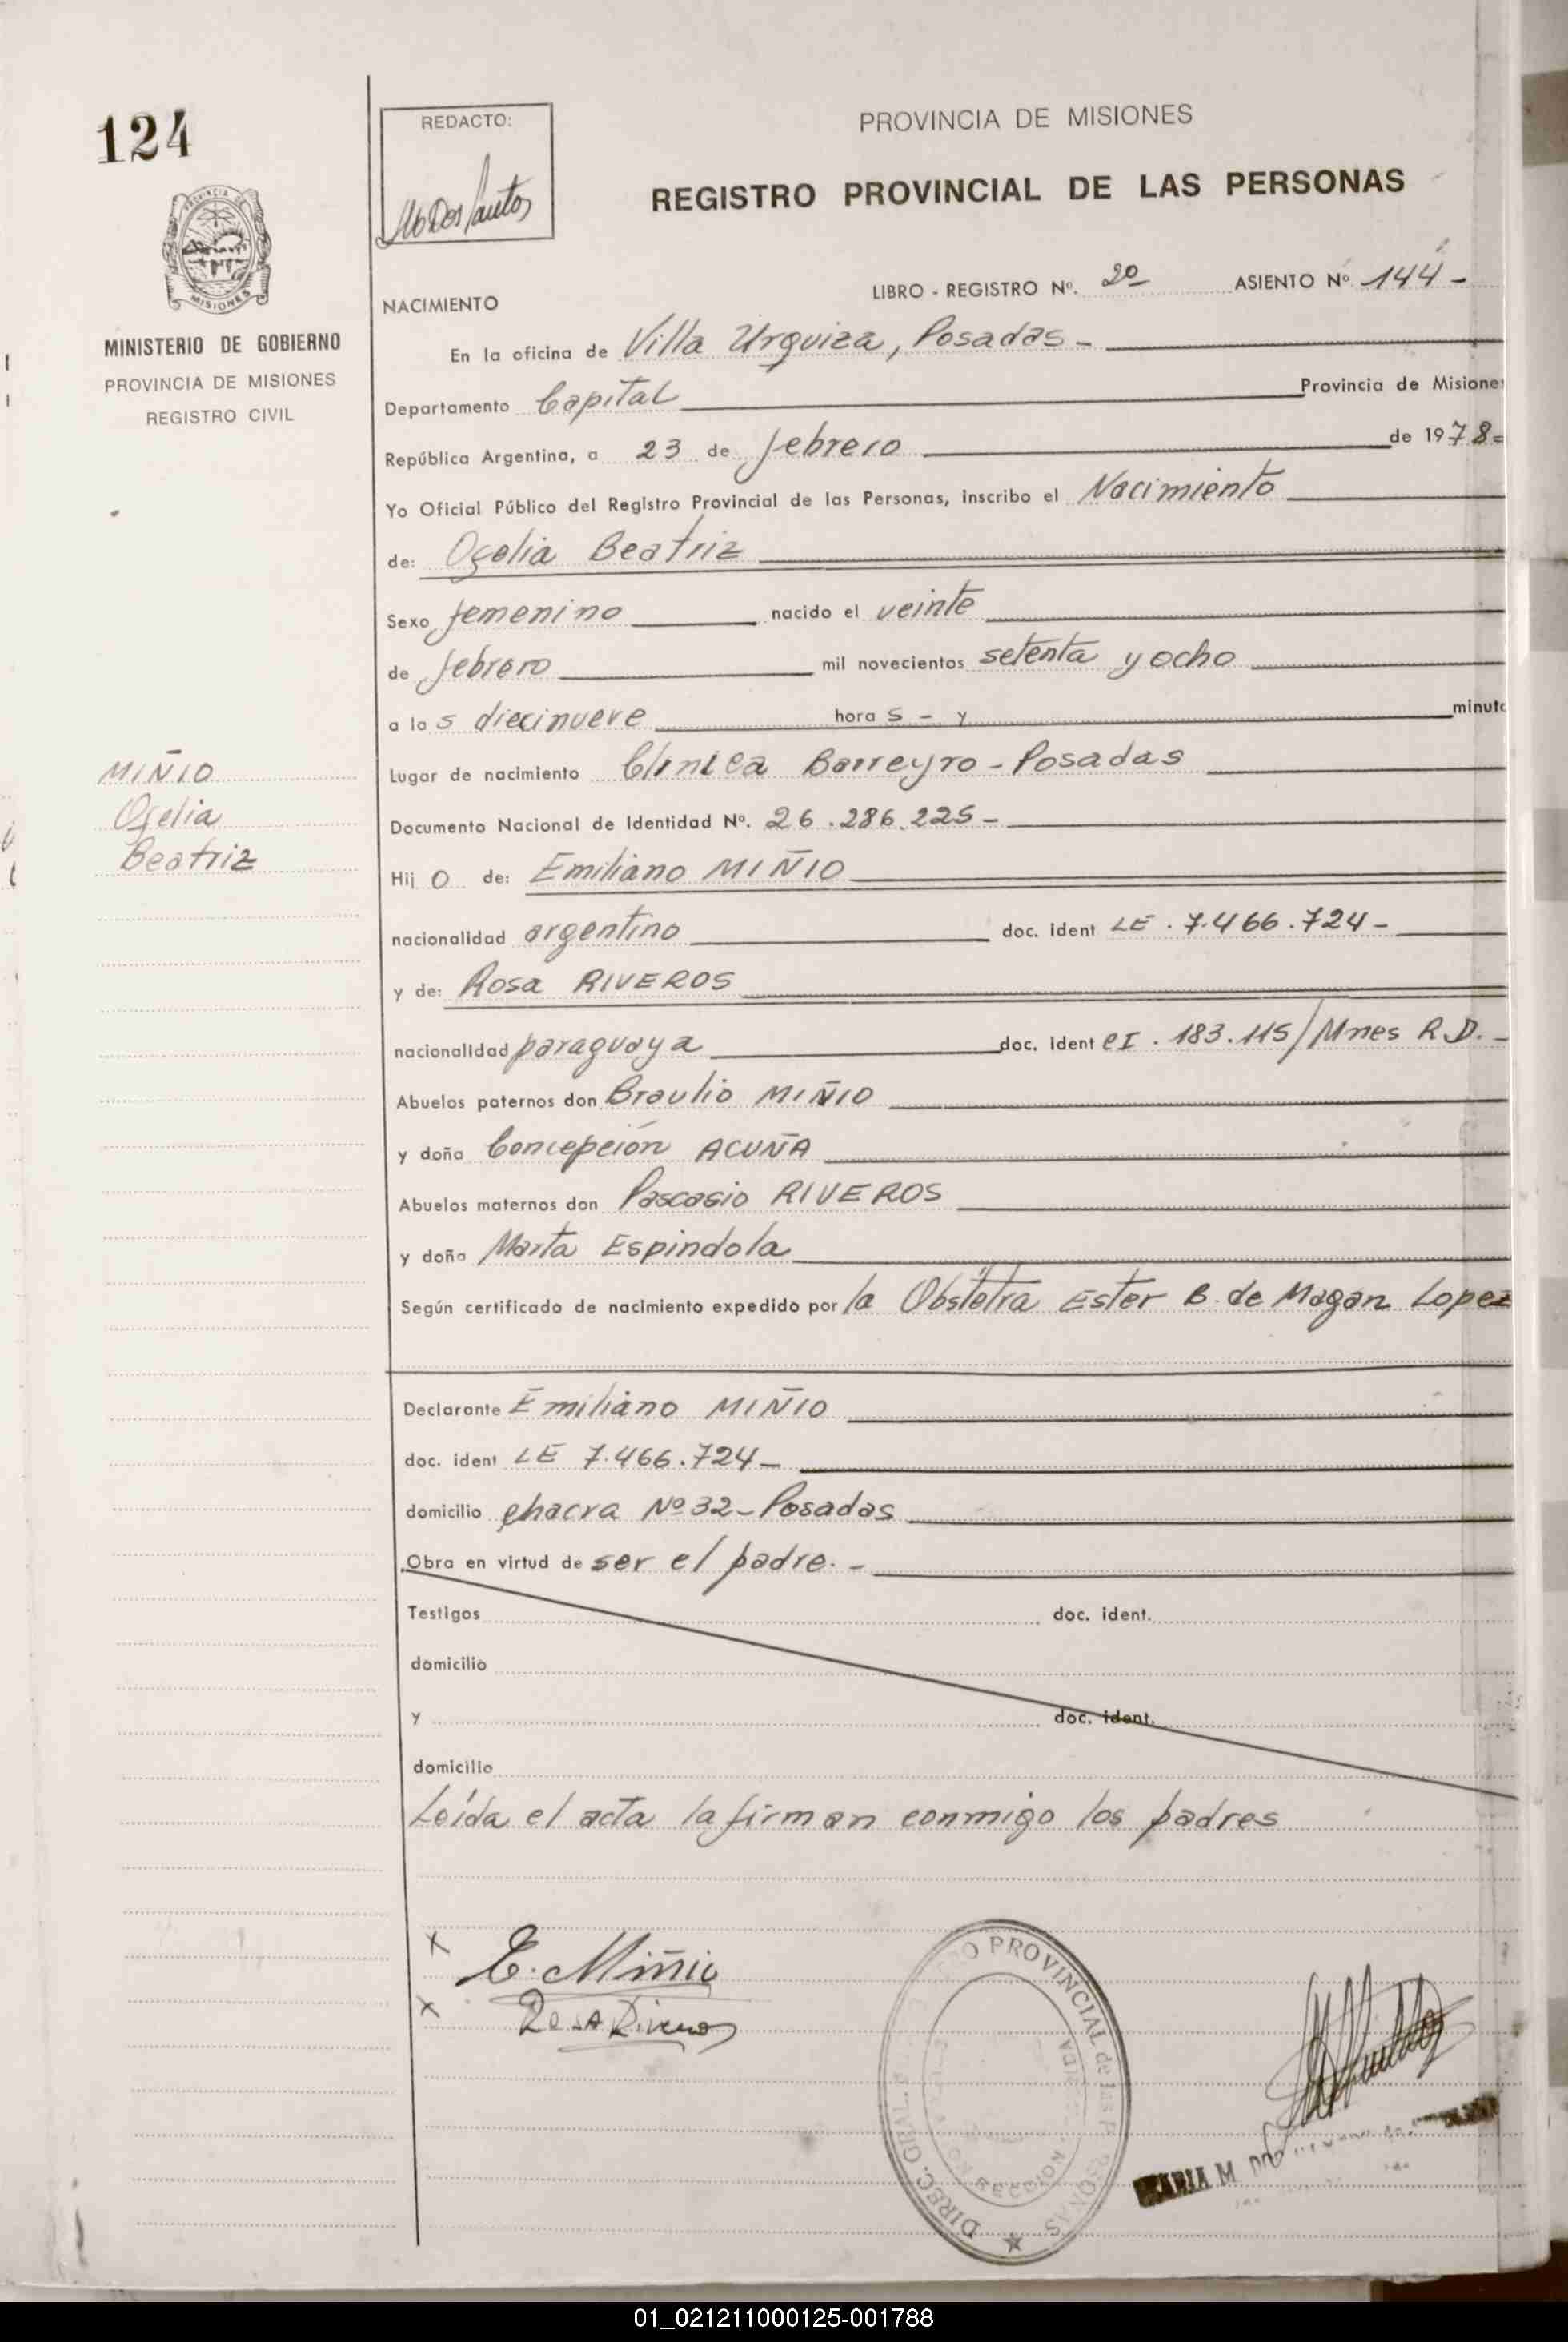 124
REDACTO:
PROVINCIA DE MISIONES
REGISTRO PROVINCIAL DE LAS PERSONAS
MISIONES
MINISTERIO DE GOBIERNO
PROVINCIA DE MISIONES
REGISTRO CIVIL
LIBRO - REGISTRO Nº. 2º ASIENTO Nº 144-
NACIMIENTO
En la oficina de Villa Urquiza, Posadas-
Departamento Capital Provincia de Misione
República Argentina, a 23 de febrero de 1978=
Yo Oficial Público del Registro Provincial de las Personas, inscribo el Nacimiento
de: Ofelia Beatriz
Sexo femenino nacido el veinte
de febrero mil novecientos setenta y ocho
a las diecinueve hora s - y minuto
MIÑIO
Ofelia
Beatriz
Lugar de nacimiento Clinica Barreyro - Posadas
Documento Nacional de Identidad Nº. 26.286.225-
Hij o de: Emiliano MIÑIO
nacionalidad argentino doc. ident LE. 7.466.724-
y de: Rosa RIVEROS
nacionalidad paraguaya doc. ident CI. 183.115/Mnes R.D.-
Abuelos paternos don Braulio MIÑIO
y doña Concepción ACUÑA
Abuelos maternos don Pascasio RIVEROS
y doña Marta Espindola
Según certificado de nacimiento expedido por la Obstetra Ester B. de Magan Lopez
Declarante Emiliano MIÑIO
doc. ident LE 7.466.724-
domicilio chacra Nº 32-Posadas
Obra en virtud de ser el padre.-
Testigos doc. ident.
domicilio
y doc. ident.
domicilio
Leída el acta la firman conmigo los padres
x E. Miñio
x Rosa Riveros
DIREC. GRAL. PROVINCIAL de las PERSONAS
SECCION
MARIA M.
01_021211000125-001788